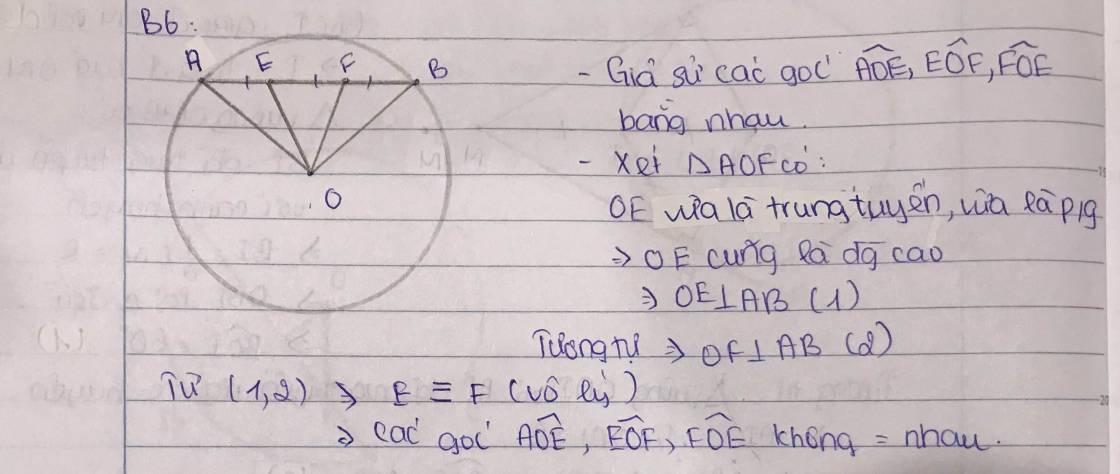 B6:
A E F B
O
- Giả sử các góc AÔE, EÔF, FÔE
bằng nhau.
- Xét ΔAOF có:
OE vừa là trung tuyến, vừa là p/g
⇒ OE cũng là đg cao
⇒ OE⊥AB (1)
Tương tự ⇒ OF⊥AB (2)
Từ (1,2) ⇒ E ≡ F (vô lý)
⇒ các góc AÔE, EÔF, FÔE không = nhau.